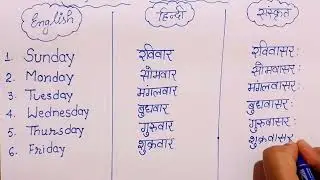 English हिन्दी संस्कृत
1. Sunday रविवार रविवासरः
2. Monday सोमवार सोमवासरः
3. Tuesday मंगलवार मंगलवासरः
4. Wednesday बुधवार बुधवासरः
5. Thursday गुरुवार गुरुवासरः
6. Friday शुक्रवार शुक्रवासर